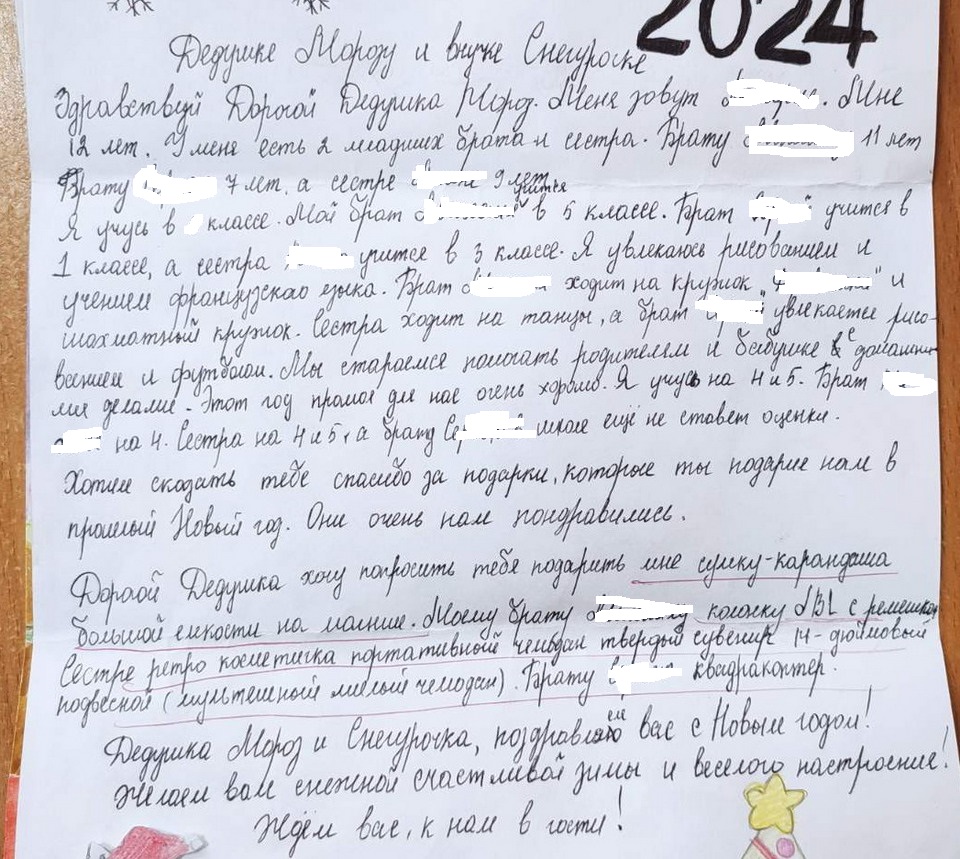 2024
Дедушке Морозу и внучке Снегуроске
Здравствуй Дорогой Дедушка Мороз. Меня зовут . Мне
12 лет. У меня есть 2 младших брата и сестра. Брату 11 лет
Брату 7 лет, а сестре 9 лет
учится
Я учусь в классе. Мой брат в 5 классе. Брат учится в
1 классе, а сестра учится в 3 классе. Я увлекаюсь рисованием и
учением французского языка. Брат ходит на кружок " " и
шахматный кружок. Сестра ходит на танцы, а брат увлекается рисо-
ванием и футболом. Мы стараемся помогать родителям и бабушке с домашни-
ми делами. Этот год прошёл для нас очень хорошо. Я учусь на 4 и 5. Брат
на 4. Сестра на 4 и 5, а брату школе ещё не ставят оценки.
Хотим сказать тебе спасибо за подарки, которые ты подарил нам в
прошлый Новый год. Они очень нам пондравились.
Дорогой Дедушка хочу попросить тебя подарить мне сумку-карандаша
большой емкости на молнии. Моему брату с ремешком
Сестре ретро косметичка портативной чемодан твердый сувенир 14-дюймовый
подвесной (мультяшный милый чемодан). Брату квадракоптер.
Дедушка Мороз и Снегурочка, поздравляем вас с Новым годом!
Желаем вам снежной счастливой зимы и веселого настроение!
Ждём вас, к нам в гости!